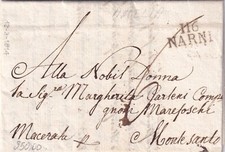 116
NARNI
Alla Nobil Donna
la Sig.ra Margherita Parteni Compa
gnoni Marefoschi
Macerata p Monte Santo